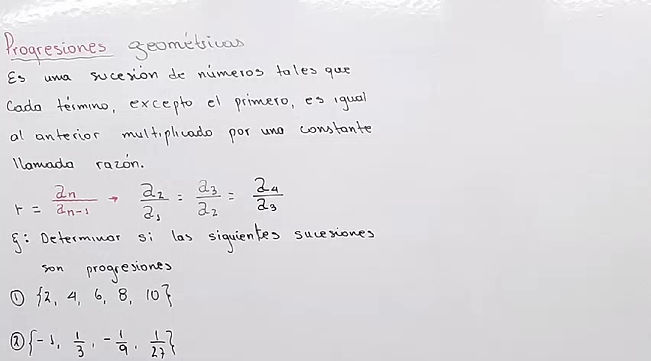 Progresiones geométricas
Es una sucesión de números tales que
Cada término, excepto el primero, es igual
al anterior multiplicado por una constante
llamada razón.
r = an/an-1 → a2/a1 = a3/a2 = a4/a3
Ej: Determinar si las siguientes sucesiones
son progresiones
① {2, 4, 6, 8, 10}
② {-1, 1/3, -1/9, 1/27}